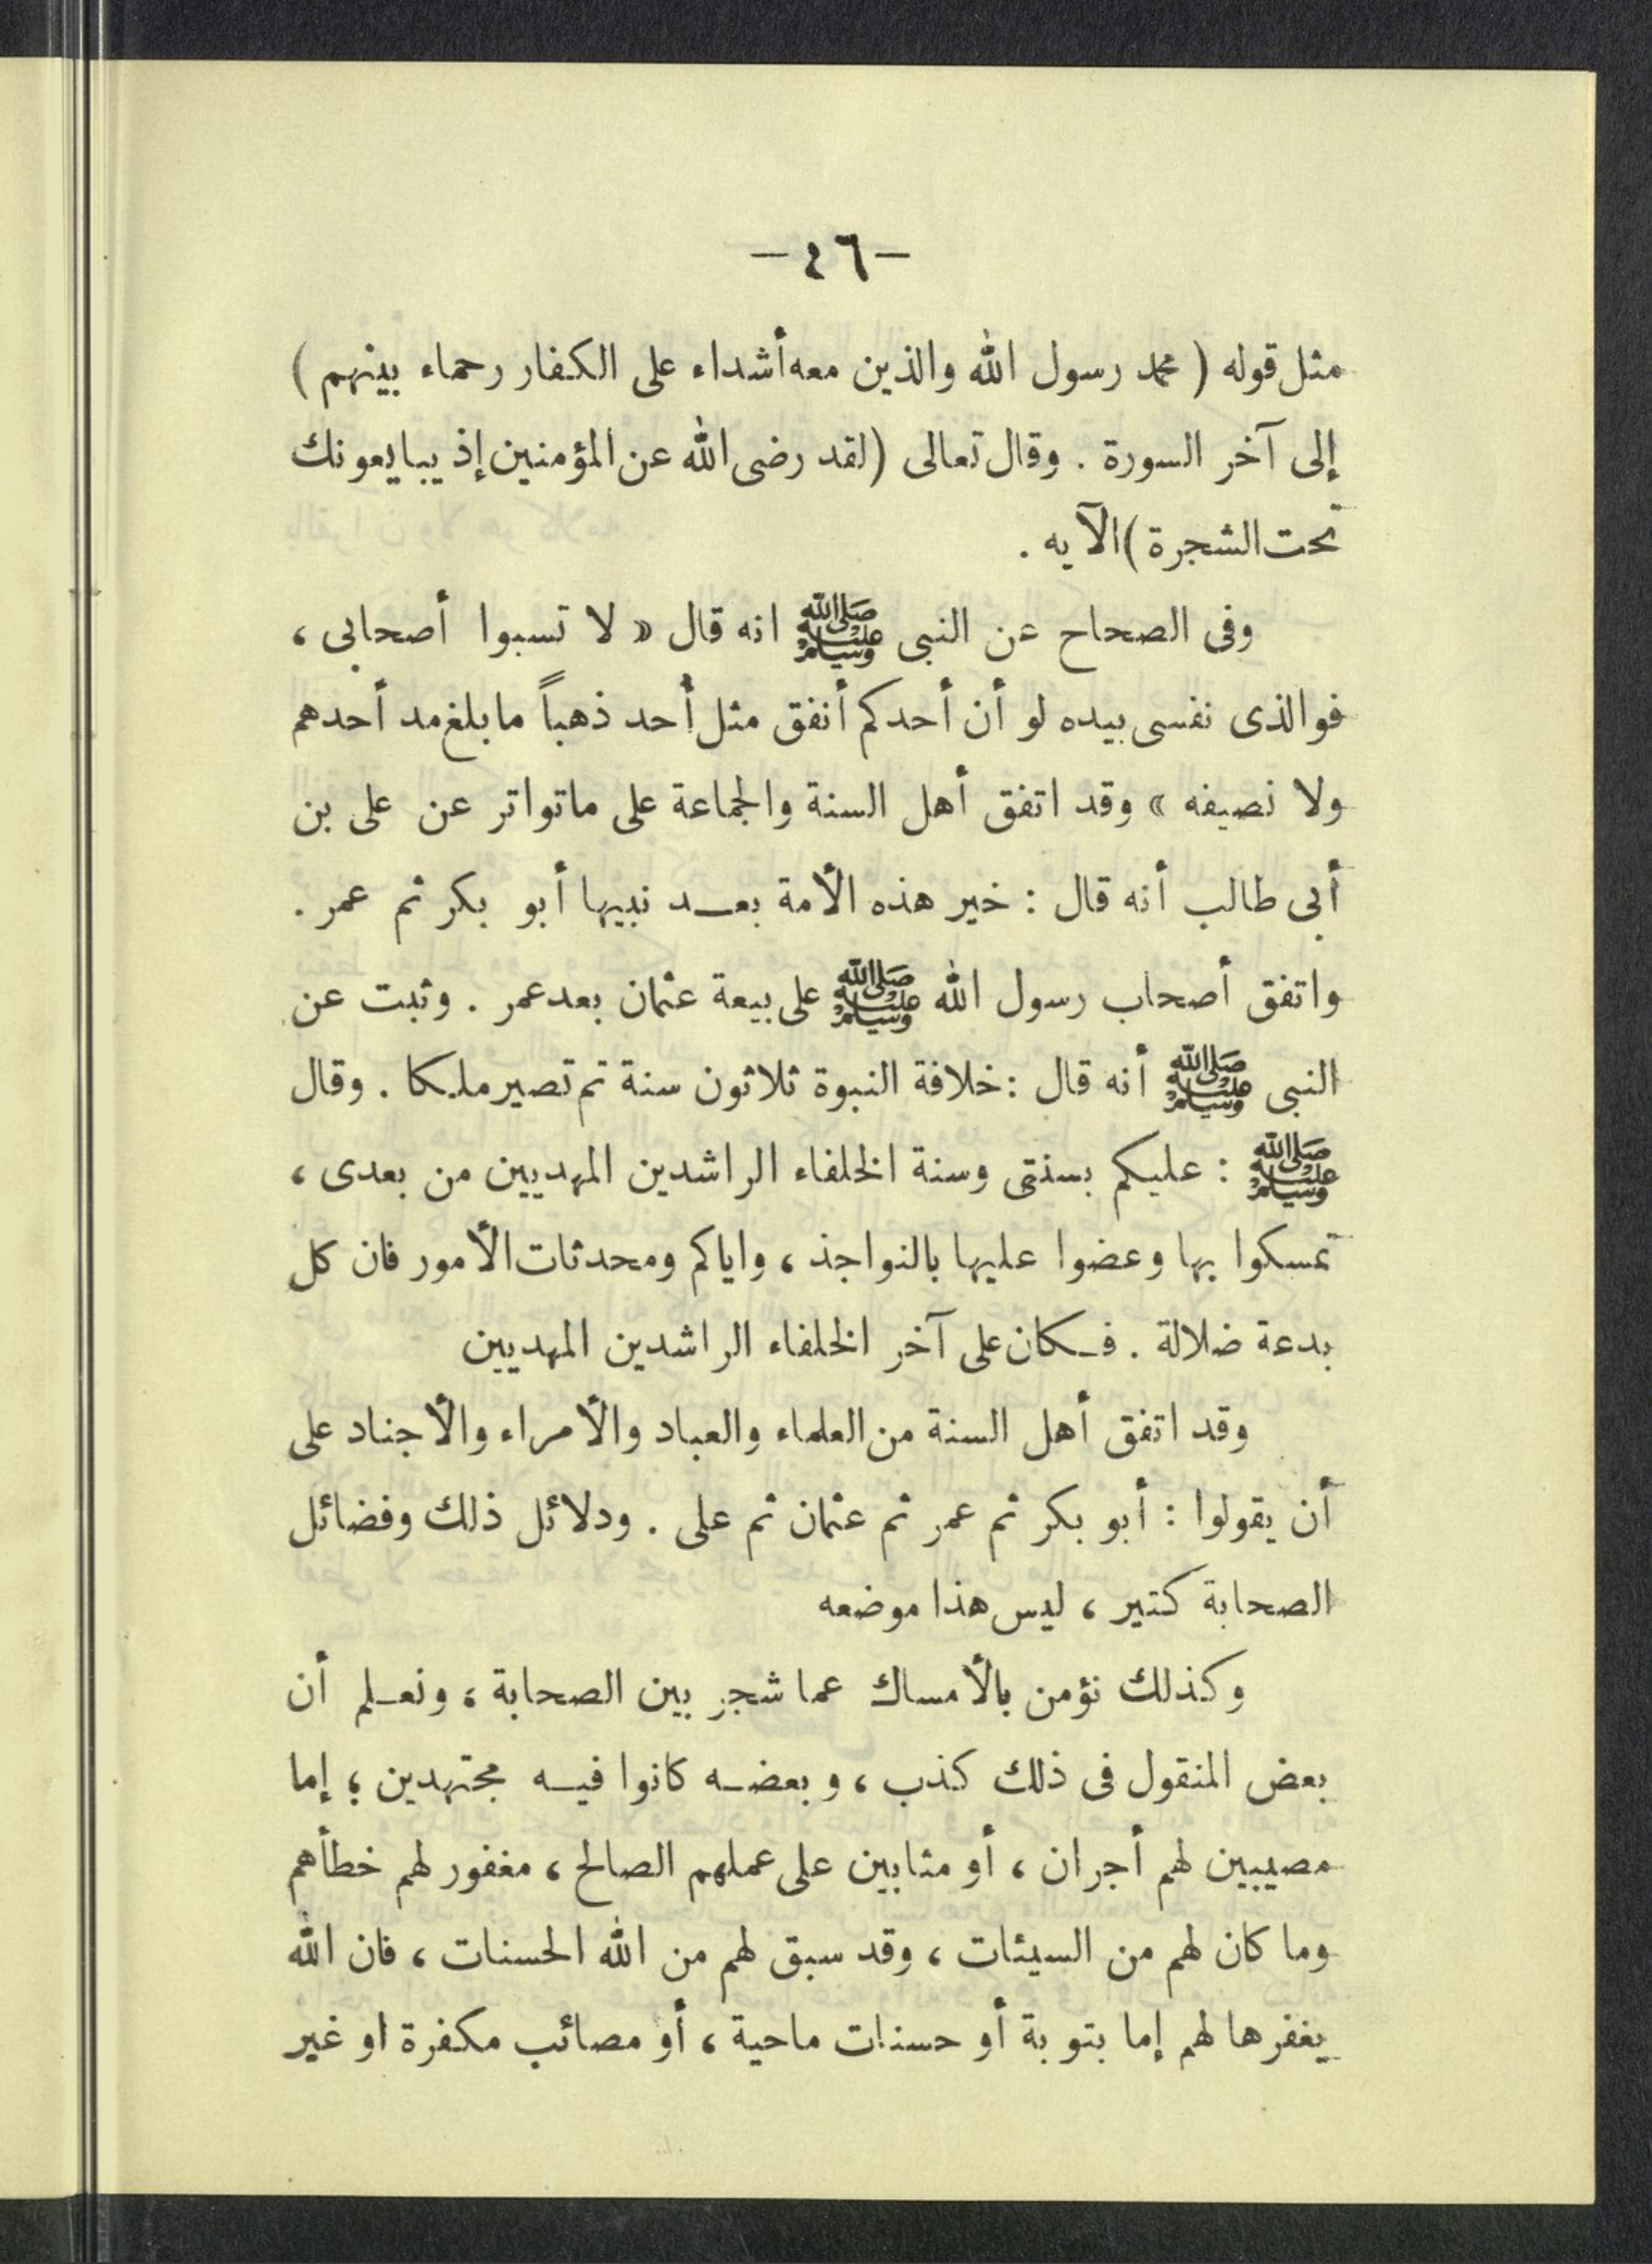 — ٤٦ —
مثل قوله ( محمد رسول الله والذين معه أشداء على الكفار رحماء بينهم )
إلى آخر السورة . وقال تعالى (لقد رضى الله عن المؤمنين إذ يبايعونك
تحت الشجرة) الآيه .
وفى الصحاح عن النبى ﷺ انه قال « لا تسبوا أصحابى ،
فوالذى نفسى بيده لو أن أحدكم أنفق مثل أُحد ذهباً ما بلغ مد أحدهم
ولا نصيفه » وقد اتفق أهل السنة والجماعة على ماتواتر عن على بن
أبى طالب أنه قال : خير هذه الأمة بعــد نبيها أبو بكر ثم عمر .
واتفق أصحاب رسول الله ﷺ على بيعة عثمان بعد عمر . وثبت عن
النبى ﷺ أنه قال : خلافة النبوة ثلاثون سنة ثم تصير ملكا . وقال
ﷺ : عليكم بسنتى وسنة الخلفاء الراشدين المهديين من بعدى ،
تمسكوا بها وعضوا عليها بالنواجذ ، واياكم ومحدثات الأمور فان كل
بدعة ضلالة . فـكان على آخر الخلفاء الراشدين المهديين
وقد اتفق أهل السنة من العلماء والعباد والأمراء والأجناد على
أن يقولوا : أبو بكر ثم عمر ثم عثمان ثم على . ودلائل ذلك وفضائل
الصحابة كثير ، ليس هذا موضعه
وكذلك نؤمن بالأمساك عما شجر بين الصحابة ، ونعـلم أن
بعض المنقول فى ذلك كذب ، وبعضــه كانوا فيــه مجتهدين ؛ إما
مصيبين لهم أجران ، أو مثابين على عملهم الصالح ، مغفور لهم خطأهم
وما كان لهم من السيئات ، وقد سبق لهم من الله الحسنات ، فان الله
يغفرها لهم إما بتوبة أو حسنات ماحية ، أو مصائب مكفرة او غير